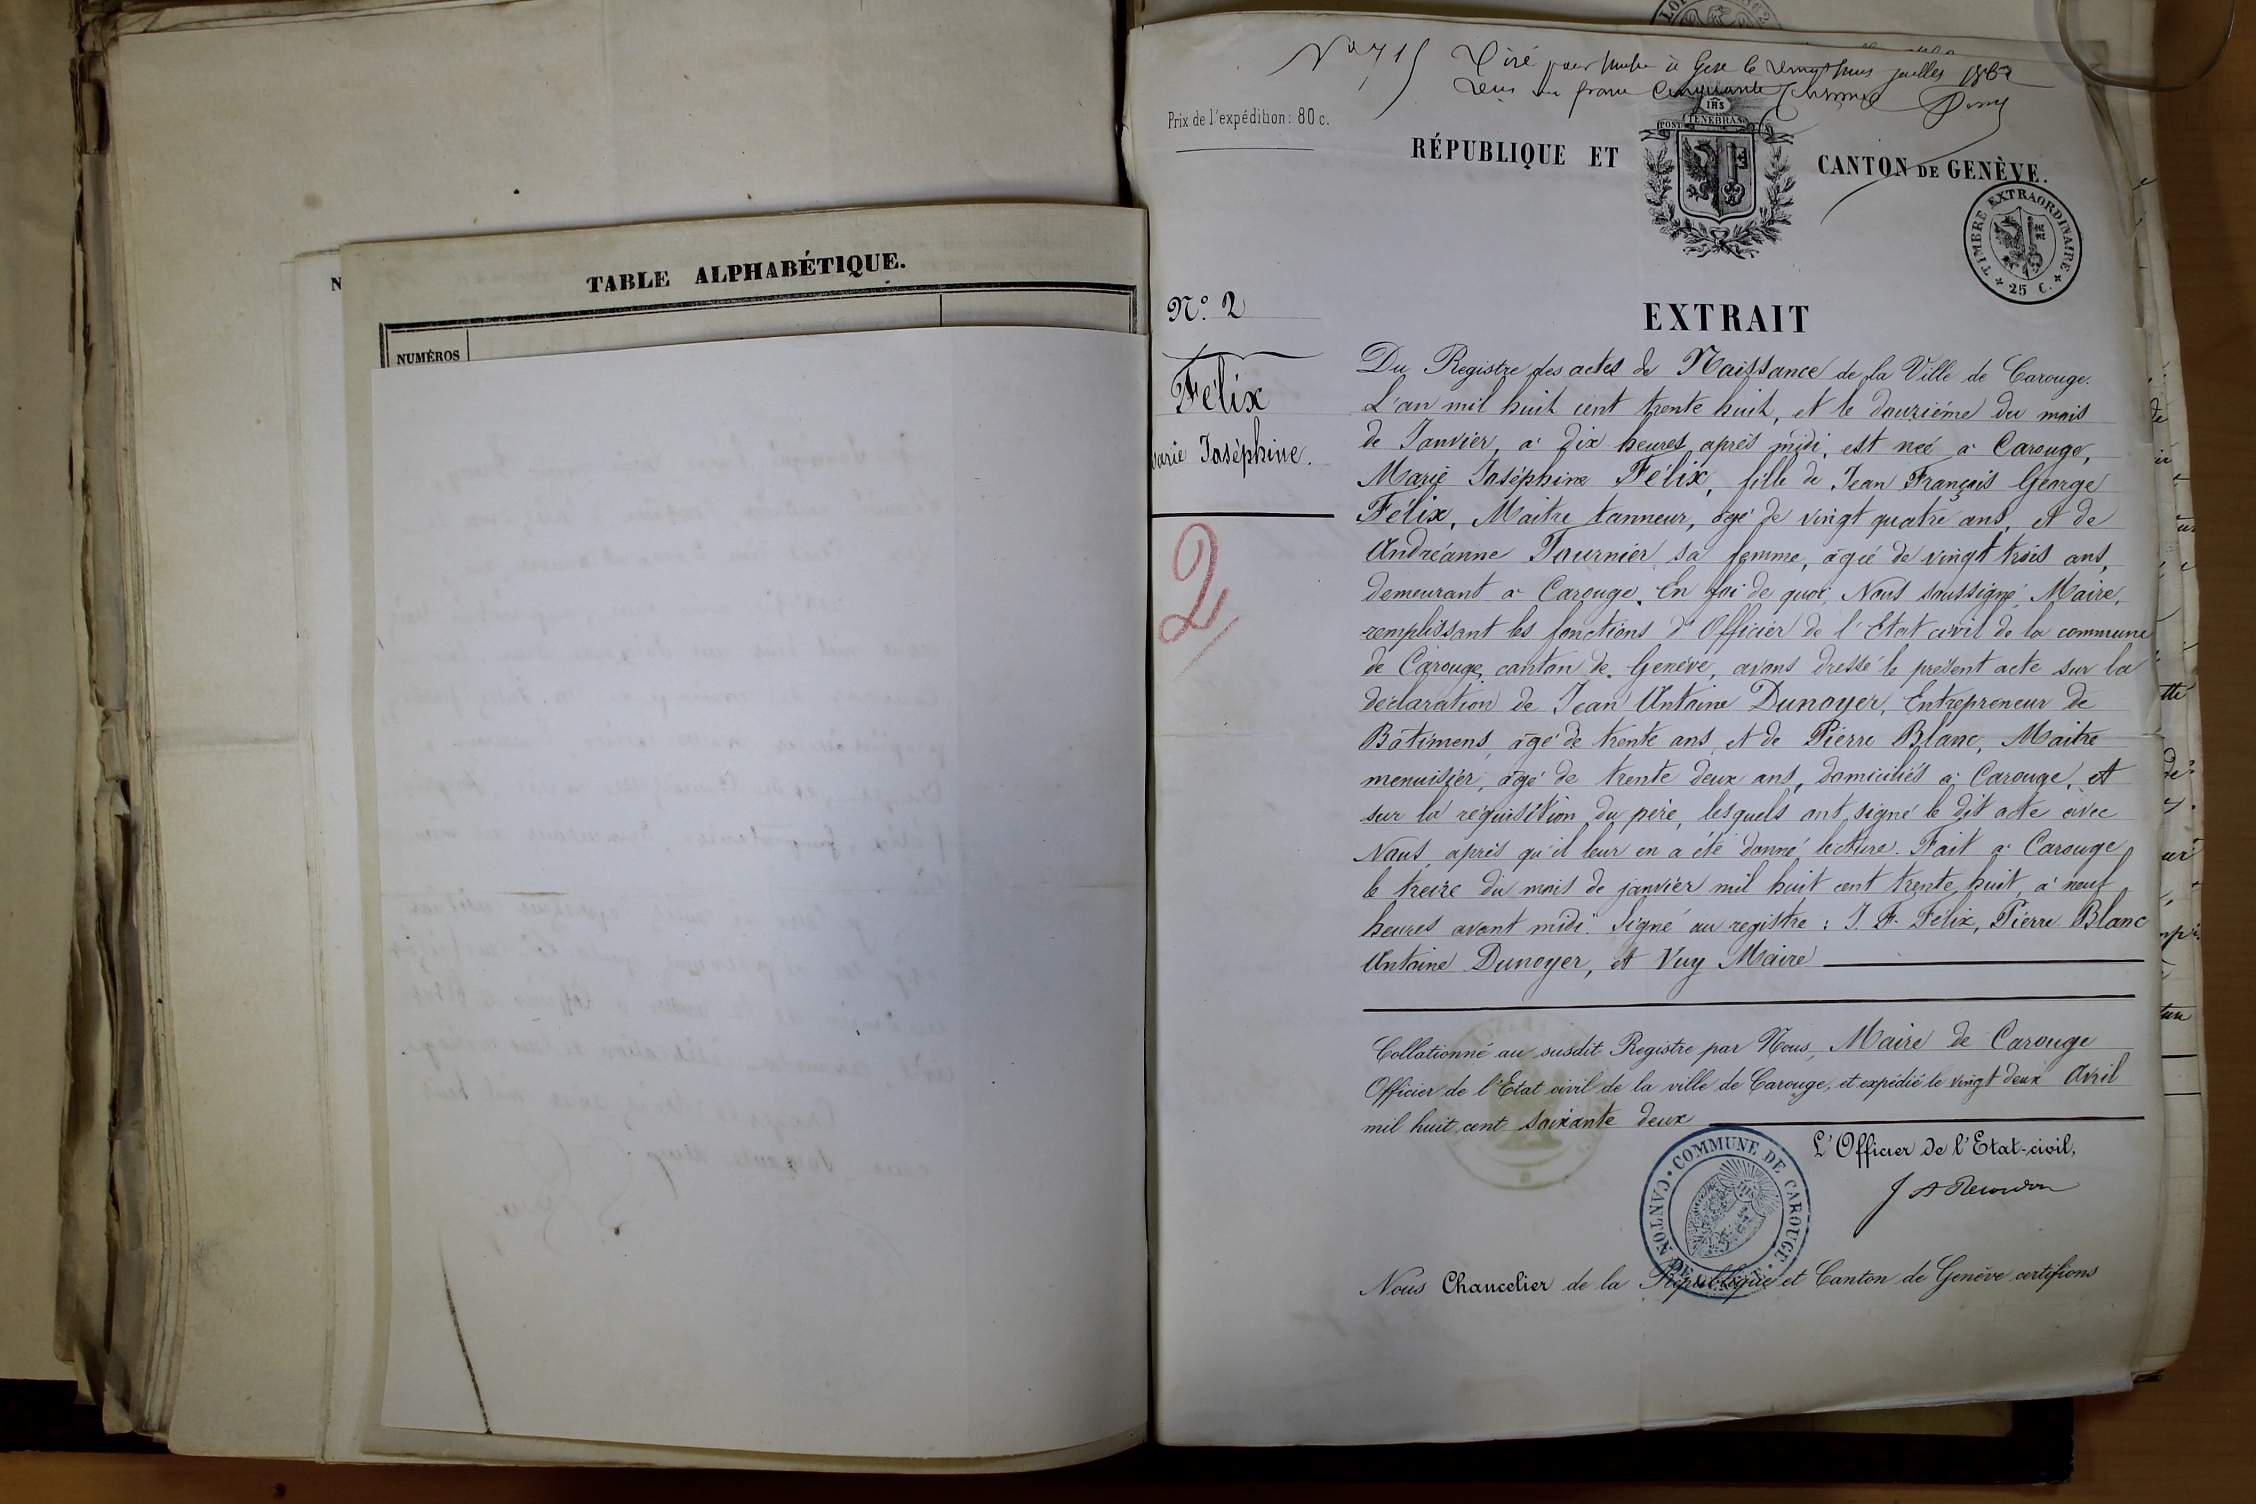 TABLE ALPHABÉTIQUE.
NUMÉROS
N° 715 Visé pour timbre à Gex le vingt huit juillet 1862
Prix de l'expédition: 80 c.
IHS
POST TENEBRAS
RÉPUBLIQUE ET CANTON DE GENÈVE.
TIMBRE EXTRAORDINAIRE
25 C.
N° 2
Félix
Marie Joséphine.
2
EXTRAIT
Du Registre des actes de Naissance de la Ville de Carouge.
L'an mil huit cent trente huit, et le douzième du mois
de Janvier, à dix heures après midi, est née à Carouge,
Marie Joséphine Félix, fille de Jean François George
Félix, Maitre tanneur, âgé de vingt quatre ans, et de
Andréanne Fournier sa femme, âgée de vingt trois ans,
demeurant à Carouge. En foi de quoi, Nous soussigné, Maire,
remplissant les fonctions d'Officier de l'Etat civil de la commune
de Carouge, canton de Genève, avons dressé le présent acte sur la
déclaration de Jean Antoine Dunoyer, Entrepreneur de
Bâtimens, âgé de trente ans, et de Pierre Blanc, Maitre
menuisier, âgé de trente deux ans, domiciliés à Carouge, et
sur la réquisition du père, lesquels ont signé le dit acte avec
Nous, après qu'il leur en a été donné lecture. Fait à Carouge
le treize du mois de janvier mil huit cent trente huit, à neuf
heures avant midi. Signé au registre : J. F. Félix, Pierre Blanc
Antoine Dunoyer, et Vuy Maire
Collationné au susdit Registre par Nous, Maire de Carouge
Officier de l'Etat civil de la ville de Carouge, et expédié le vingt deux Avril
mil huit cent soixante deux
L'Officier de l'Etat-civil,
COMMUNE DE CAROUGE
CANTON DE GENÈVE
Nous Chancelier de la République et Canton de Genève certifions